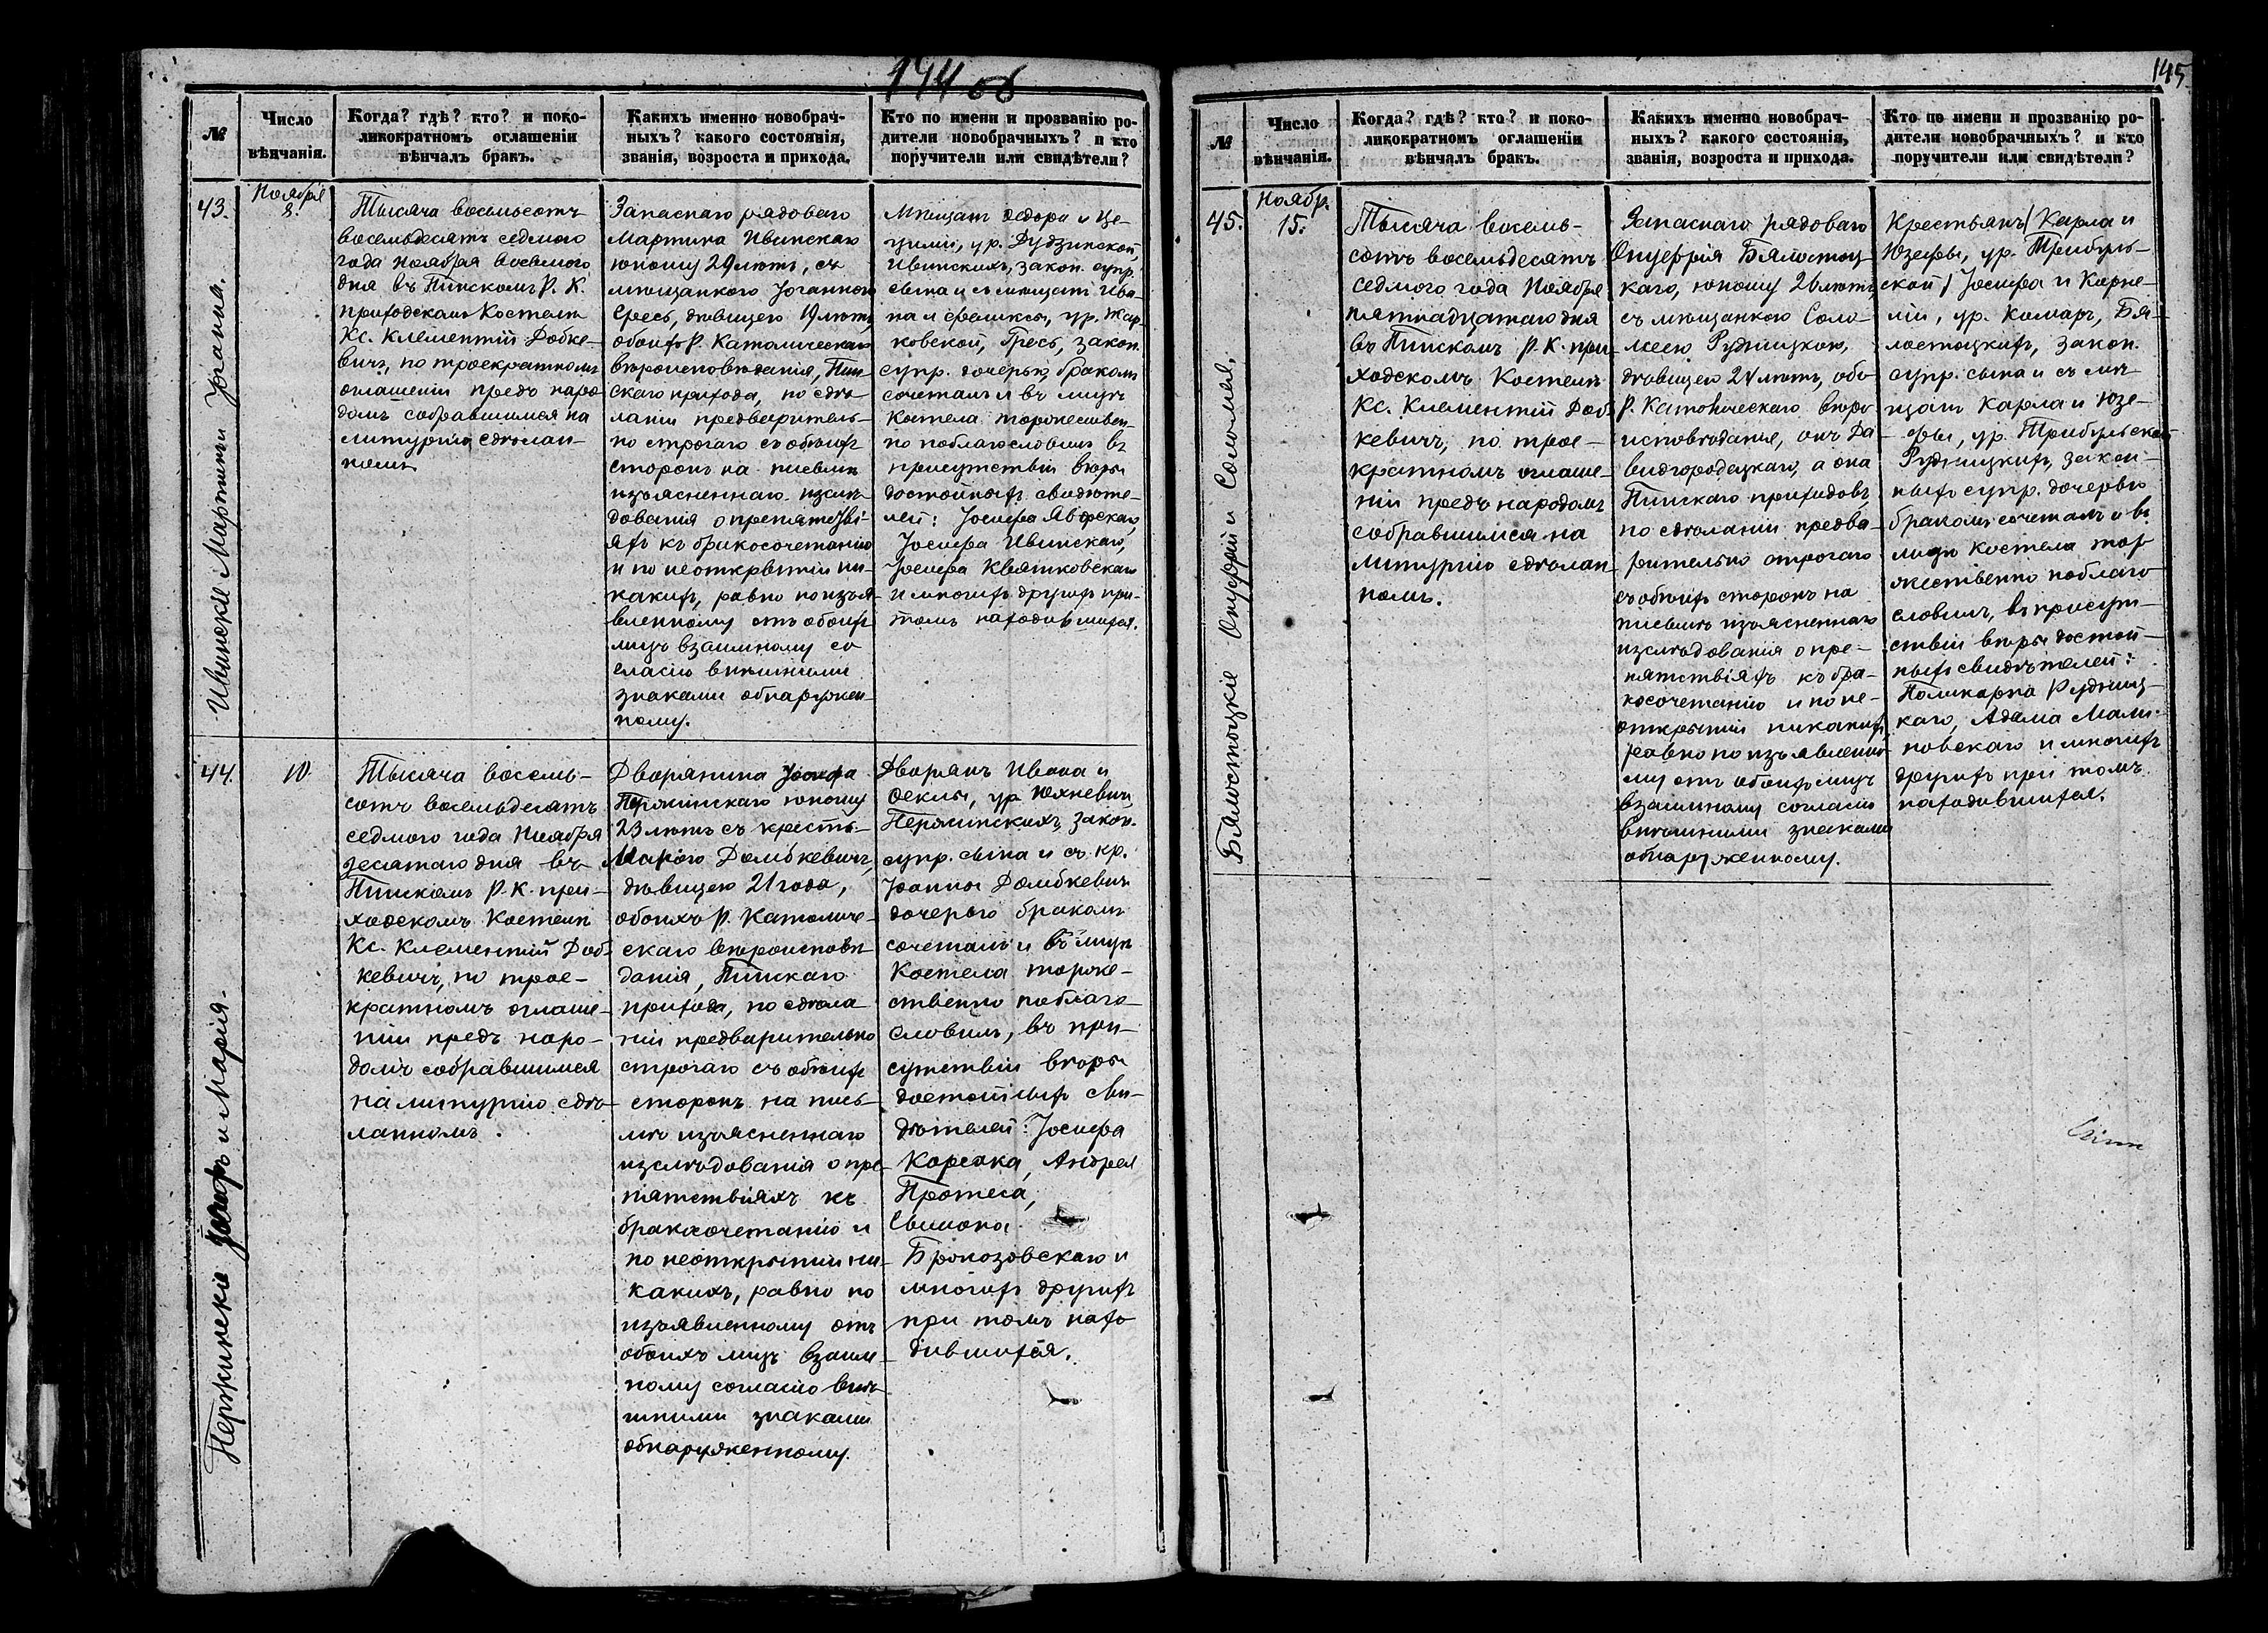 144 об
№
Число
вѣнчанія.
Когда? гдѣ? кто? и поко-
ликократномъ оглашеніи
вѣнчалъ бракъ.
Какихъ именно новобрач-
ныхъ? какого состоянія,
званія, возроста и прихода.
Кто по имени и прозванію ро-
дители новобрачныхъ? и кто
поручители или свидѣтели?
43.
Ивинскіе Мартинъ и Іоганна.
Ноября
8.
Тысяча восемьсотъ
восемьдесятъ седмого
года Ноября восьмого
дня въ Пинскомъ Р. К.
приходскомъ Костелѣ
Кс. Клементій Добке-
вичъ, по троекратномъ
оглашеніи предъ наро
домъ собравшимся на
литургію сдѣлан-
номъ
Запаснаго рядоваго
Мартина Ивинскаго
юношу 29 лѣтъ, съ
мѣщанкою Іоганною
Гресь, дѣвицею 19 лѣтъ,
обоихъ Р. Католическаго
вѣроисповѣданія, Пин-
скаго прихода, по сдѣ-
ланіи предваритель-
но строгаго съ обоихъ
сторонъ на письмѣ
изъясненнаго изслѣ-
дованія о препятстві-
яхъ къ бракосочетанію
и по неоткрытіи ни-
какихъ, равно по изъя-
вленному отъ обоихъ
лицъ взаимному со
гласію внѣшними
знаками обнаружен-
ному.
Мѣщанъ Федора и Це-
циліи, ур. Рудзинской,
Ивинскихъ, закон. супр.
сына и съ мѣщанъ Ива-
на и Феликсы, ур. Жар-
ковской, Гресь, закон.
супр. дочерью, бракомъ
сочеталъ и въ лицѣ
Костела торжествен-
но поблагословилъ въ
присутствіи вѣры
достойныхъ свидѣте-
лей: Іосифа Яворскаго,
Іосифа Ивинскаго,
Іосифа Квятковскаго
и многихъ другихъ при-
томъ находившихся.
44.
Пержинскіе Іосифъ и Марія.
10.
Тысяча восемь-
сотъ восемьдесятъ
седмого года Ноября
десятаго дня въ
Пинскомъ Р. К. при-
ходскомъ Костелѣ
Кс. Клементій Доб-
кевичъ, по трое-
кратномъ оглаше-
ніи предъ наро-
домъ собравшимся
на литургію сдѣ-
ланномъ.
Дворянина Іосифа
Пержинскаго юношу
23 лѣтъ съ крестъ-
Маріею Домбкевичъ,
дѣвицею 21 года,
обоихъ Р. Католиче-
скаго вѣроисповѣ-
данія, Пинскаго
прихода, по сдѣла
ніи предварительно
строгаго съ обоихъ
сторонъ на пись-
мѣ изъясненнаго
изслѣдованія о пре-
пятствіяхъ къ
бракосочетанію и
по неоткрытіи ни-
какихъ, равно по
изъявленному отъ
обоихъ лицъ взаим-
ному согласію внѣ-
шними знаками
обнаруженному.
Дворянъ Ивана и
Феклы, ур. Юхневичъ,
Пержинскихъ, закон.
супр. сына и съ кр.
Іоанны Домбкевичъ
дочерью бракомъ
сочеталъ и въ лицѣ
Костела торже-
ственно поблаго-
словилъ, въ при-
сутствіи вѣры
достойныхъ сви-
дѣтелей: Іосифа
Корсака, Андрея
Протеса,
Симона
Бронозовскаго и
многихъ другихъ
при томъ нахо
дившихся.
145
№
Число
вѣнчанія.
Когда? гдѣ? кто? и поко-
ликократномъ оглашеніи
вѣнчалъ бракъ.
Какихъ именно новобрач-
ныхъ? какого состоянія,
званія, возроста и прихода.
Кто по имени и прозванію ро-
дители новобрачныхъ? и кто
поручители или свидѣтели?
45.
Бялостоцкіе Онуфрій и Соломея.
Ноябр.
15.
Тысяча восемь-
сотъ восемьдесятъ
седмого года Ноября
пятнадцатаго дня
въ Пинскомъ Р. К. при-
ходскомъ Костелѣ
Кс. Клементій Доб-
кевичъ, по трое-
кратномъ оглаше-
ніи предъ народомъ
собравшимся на
литургію сдѣлан-
номъ.
Запаснаго рядоваго
Онуфрія Бялостоц-
каго, юношу 26 лѣтъ,
съ мѣщанкою Соло-
меею Рудницкою,
дѣвицею 24 лѣтъ, обо
Р. Католическаго вѣро
исповѣданія, онъ Да
видгородецкаго, а она
Пинскаго приходовъ,
по сдѣланіи предва-
рительно строгаго
съ обоихъ сторонъ на
письмѣ изъясненнаго
изслѣдованія о пре-
пятствіяхъ къ бра-
косочетанію и по не-
открытіи никакихъ,
равно по изъявленно
му отъ обоихъ лицъ
взаимному согласію
внѣшними знаками
обнаруженному.
Крестьянъ Карла и
Юзефы, ур. Трибуль-
ской Іосифа и Корне-
ліи, ур. Комаръ, Бя-
лостоцкихъ, закон.
супр. сына и съ мѣ-
щанъ Карла и Юзе-
фы, ур. Трибульской
Рудницкихъ, закон-
ныхъ супр. дочерью
бракомъ сочеталъ и въ
лицѣ Костела тор
жественно поблаго
словилъ, въ присут-
ствіи вѣры достой-
ныхъ свидѣтелей:
Поликарпа Рудниц-
каго, Адама Мали-
новскаго и многихъ
другихъ при томъ
находившихся.